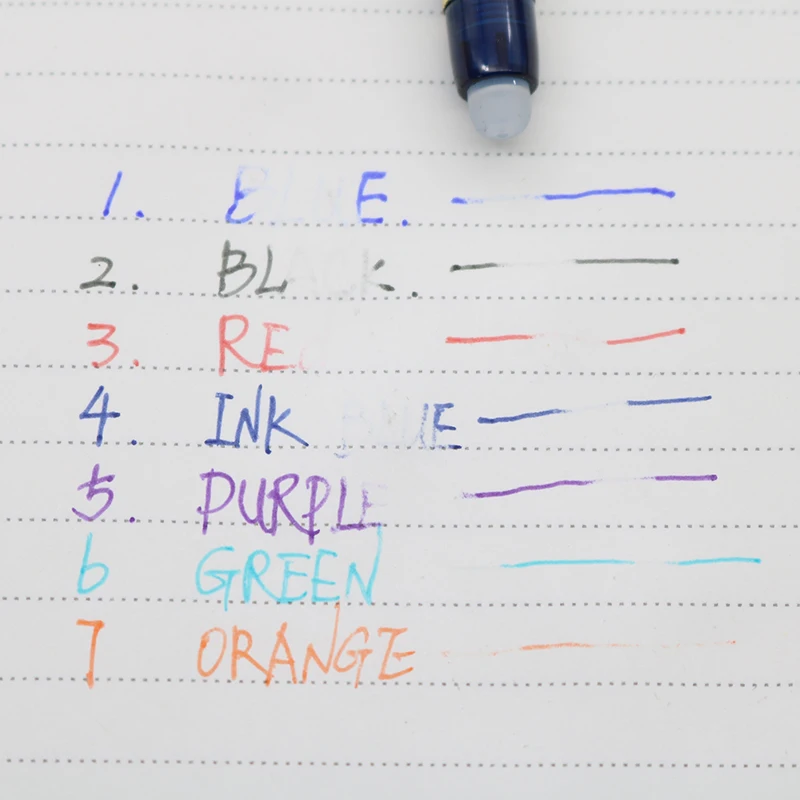 1. BLUE.
2. BLACK.
3. RED
4. INK BLUE
5. PURPLE
6 GREEN
7 ORANGE